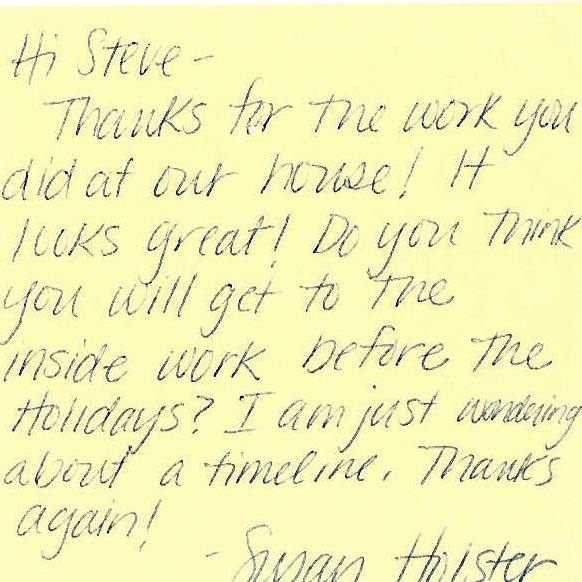 Hi Steve -
Thanks for the work you
did at our house! It
looks great! Do you think
you will get to the
inside work before the
Holidays? I am just wondering
about a timeline. Thanks
again!
- Susan Holster